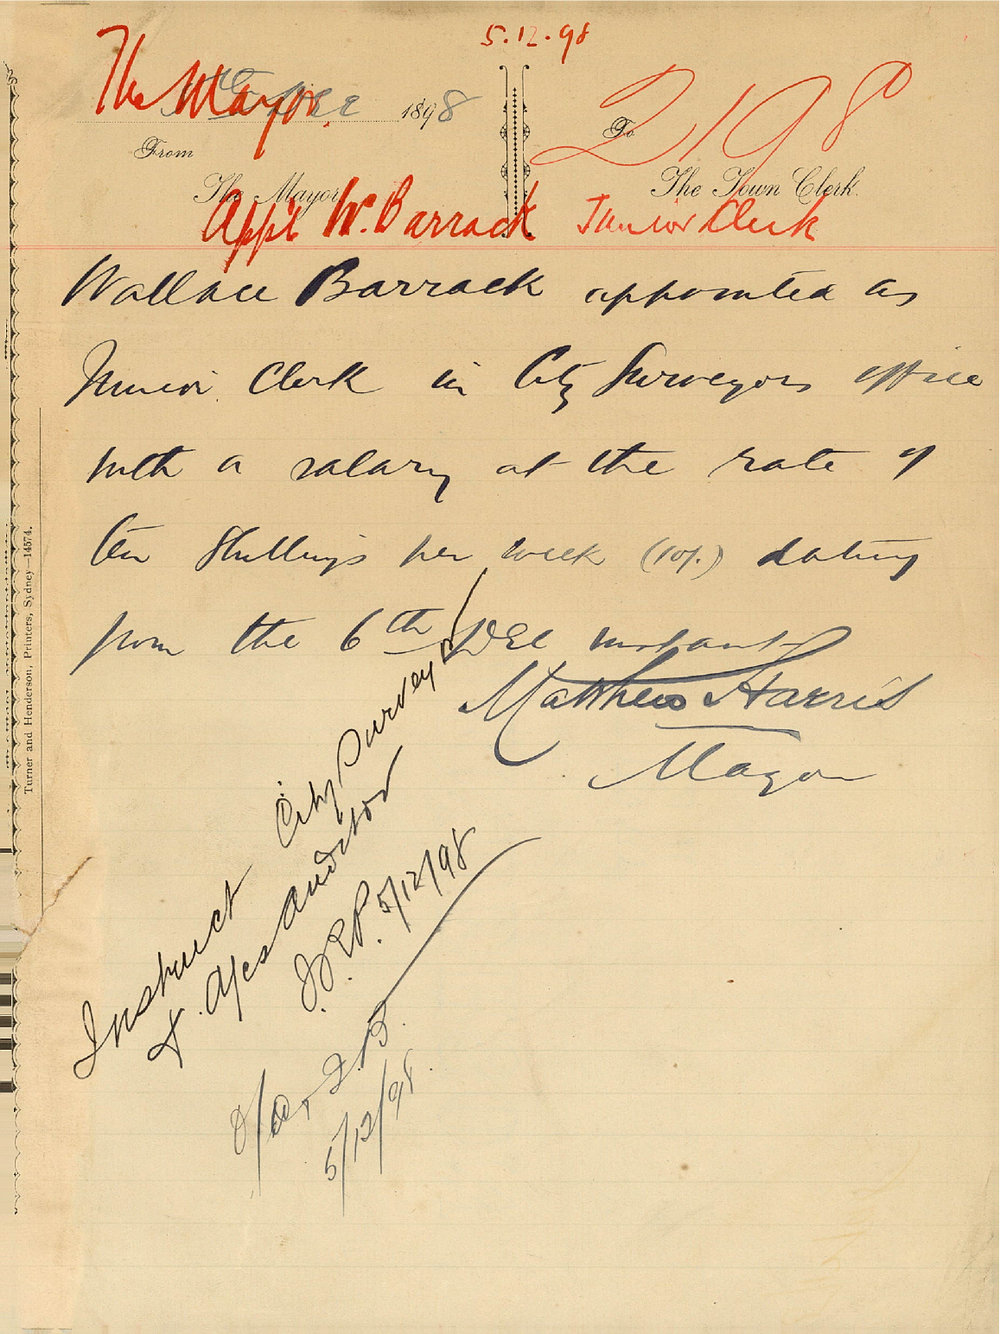 5.12.98
The Mayor
5th Dec 1898
2198
From
To
The Mayor
The Town Clerk
Appt W. Barrack Junior Clerk
Wallace Barrack appointed as
Junior Clerk in City Surveyors office
with a salary at the rate of
ten Shillings per week (10/.) dating
from the 6th Dec instant
Matthew Harris
Mayor
Instruct City Surveyor
& Ajes Auditor
J.R.P. 5/12/98
5/12/98
Turner and Henderson, Printers, Sydney—14574.